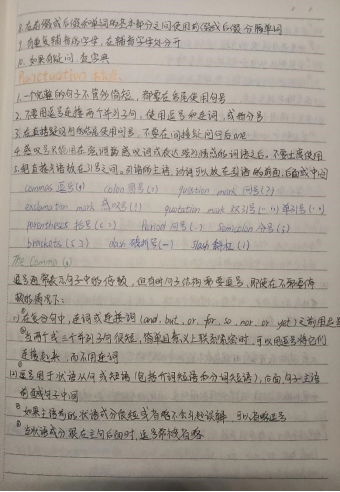 8.在前缀或后缀和单词的基本部分之间使用前缀或后缀分隔单词
9.有重复辅音的字母,在辅音字母处分开
10.如果有疑问,查字典
Punctuation 标点
1.一个完整的句子不管多简短,都要在句尾使用句号
2.不要用逗号连接两个并列子句,使用逗号和连词,或用分号
3.在直接疑问句的句尾使用问号,不要在间接疑问句后使用
4.感叹号只能用在强调感叹词或表达强烈情感的词语之后,不要过度使用
5.把直接引语放在引号之间,引语的主语、动词可以放在引语的前面、后面或中间
commas 逗号(,) colon 冒号(:) question mark 问号(?)
exclamation mark 感叹号(!) quotation mark 双引号(" ")单引号(' ')
parentheses 括号(()) Period 句号(.) Semicolon 分号(;)
brackets([]) dash 破折号(—) slash 斜杠(/)
The comma (,)
逗号通常表示句子中的停顿,但有时句子结构需要逗号,即使在不需要停
顿的情况下:
(1)在复合句中,连词或连接词(and, but, or, for, so, nor, or yet)之前用逗号
当两个或三个并列子句很短,简单且意义上联系紧密时,可以用逗号将它们
连接起来,而不用连词
(2)逗号用于状语从句或短语(包括介词短语和分词短语),后面,句子主语
前或句子中间
如果主语前的状语成分很短或省略不会引起误解,可以省略逗号
当状语成分放在主句后面时,逗号常被省略